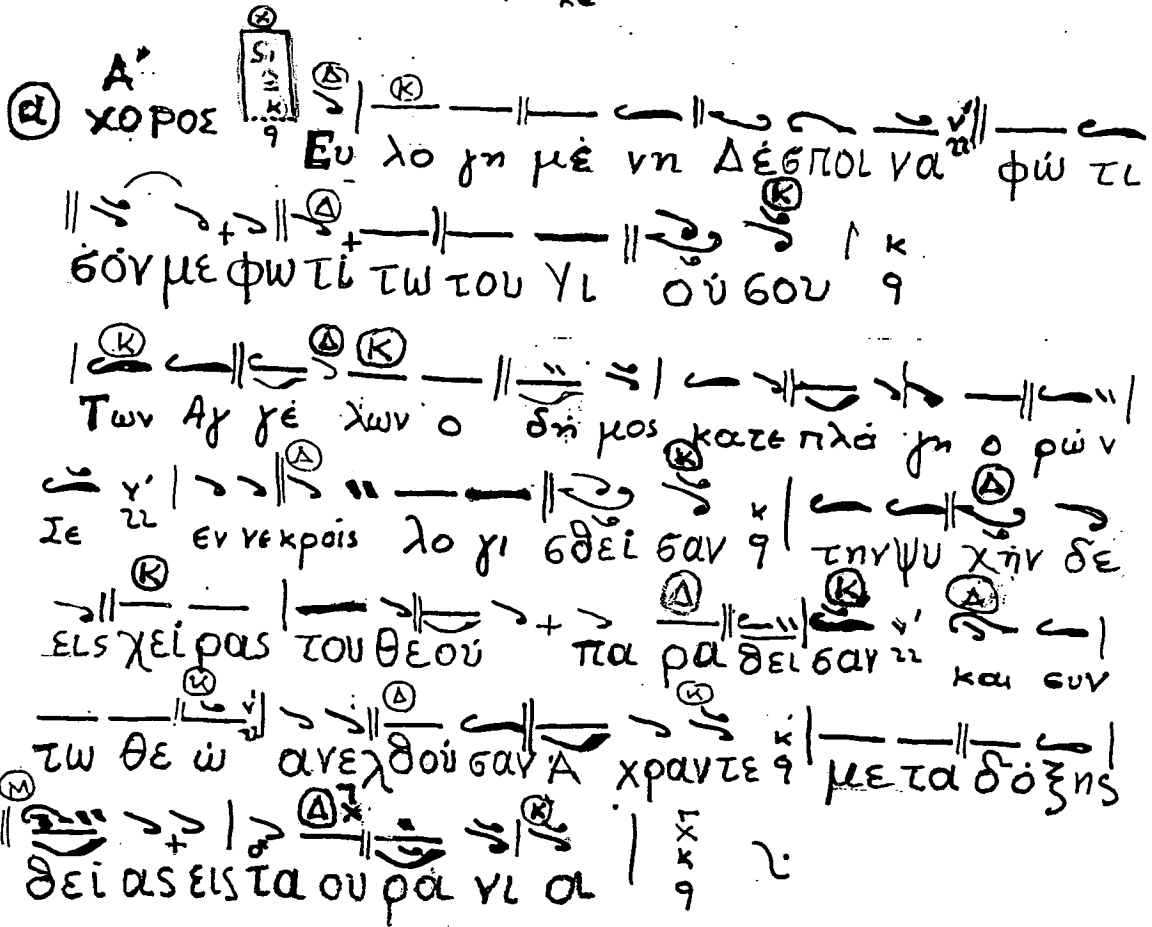 α Α' χορος Ευ λο γη μέ νη Δέσποι να φώ τι
σόν με φω τί τω του Υι ού σου
Των Αγ γέ λων ο δή μος κατε πλά γη ο ρών
Σε εν νεκροίς λο γι σθεί σαν την ψυ χήν δε
εις χεί ρας του θεού πα ρα θεί σαν και συν
τω θε ώ ανελθού σαν Ά χραντε με τα δό ξης
θεί ας εις τα ου ρά νι α